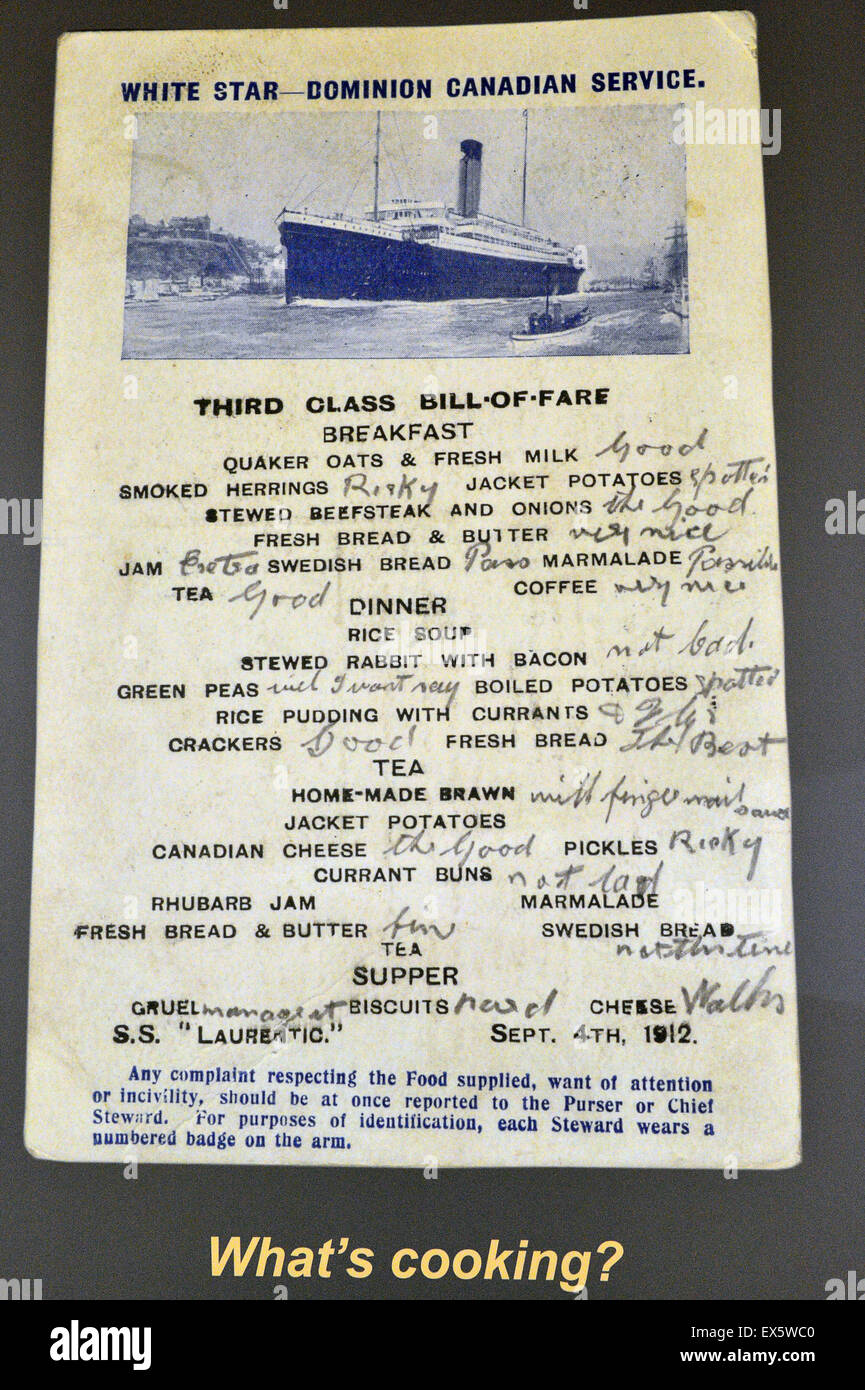 WHITE STAR—DOMINION CANADIAN SERVICE.
THIRD CLASS BILL-OF-FARE
BREAKFAST
QUAKER OATS & FRESH MILK Good
SMOKED HERRINGS Risky JACKET POTATOES spotted
STEWED BEEFSTEAK AND ONIONS the Good
FRESH BREAD & BUTTER very nice
JAM SWEDISH BREAD Pass MARMALADE Passible
TEA Good COFFEE very nice
DINNER
RICE SOUP
STEWED RABBIT WITH BACON not bad
GREEN PEAS well I wont say BOILED POTATOES spotted
RICE PUDDING WITH CURRANTS &
CRACKERS Good FRESH BREAD The Best
TEA
HOME-MADE BRAWN with finger nail sauce
JACKET POTATOES
CANADIAN CHEESE the Good PICKLES Risky
CURRANT BUNS not bad
RHUBARB JAM MARMALADE
FRESH BREAD & BUTTER SWEDISH BREAD
TEA not this time
SUPPER
GRUEL BISCUITS hard CHEESE Walks
S.S. "LAURENTIC." SEPT. 4TH, 1912.
Any complaint respecting the Food supplied, want of attention
or incivility, should be at once reported to the Purser or Chief
Steward. For purposes of identification, each Steward wears a
numbered badge on the arm.
What's cooking?
alamy
Image ID: EX5WC0
www.alamy.com